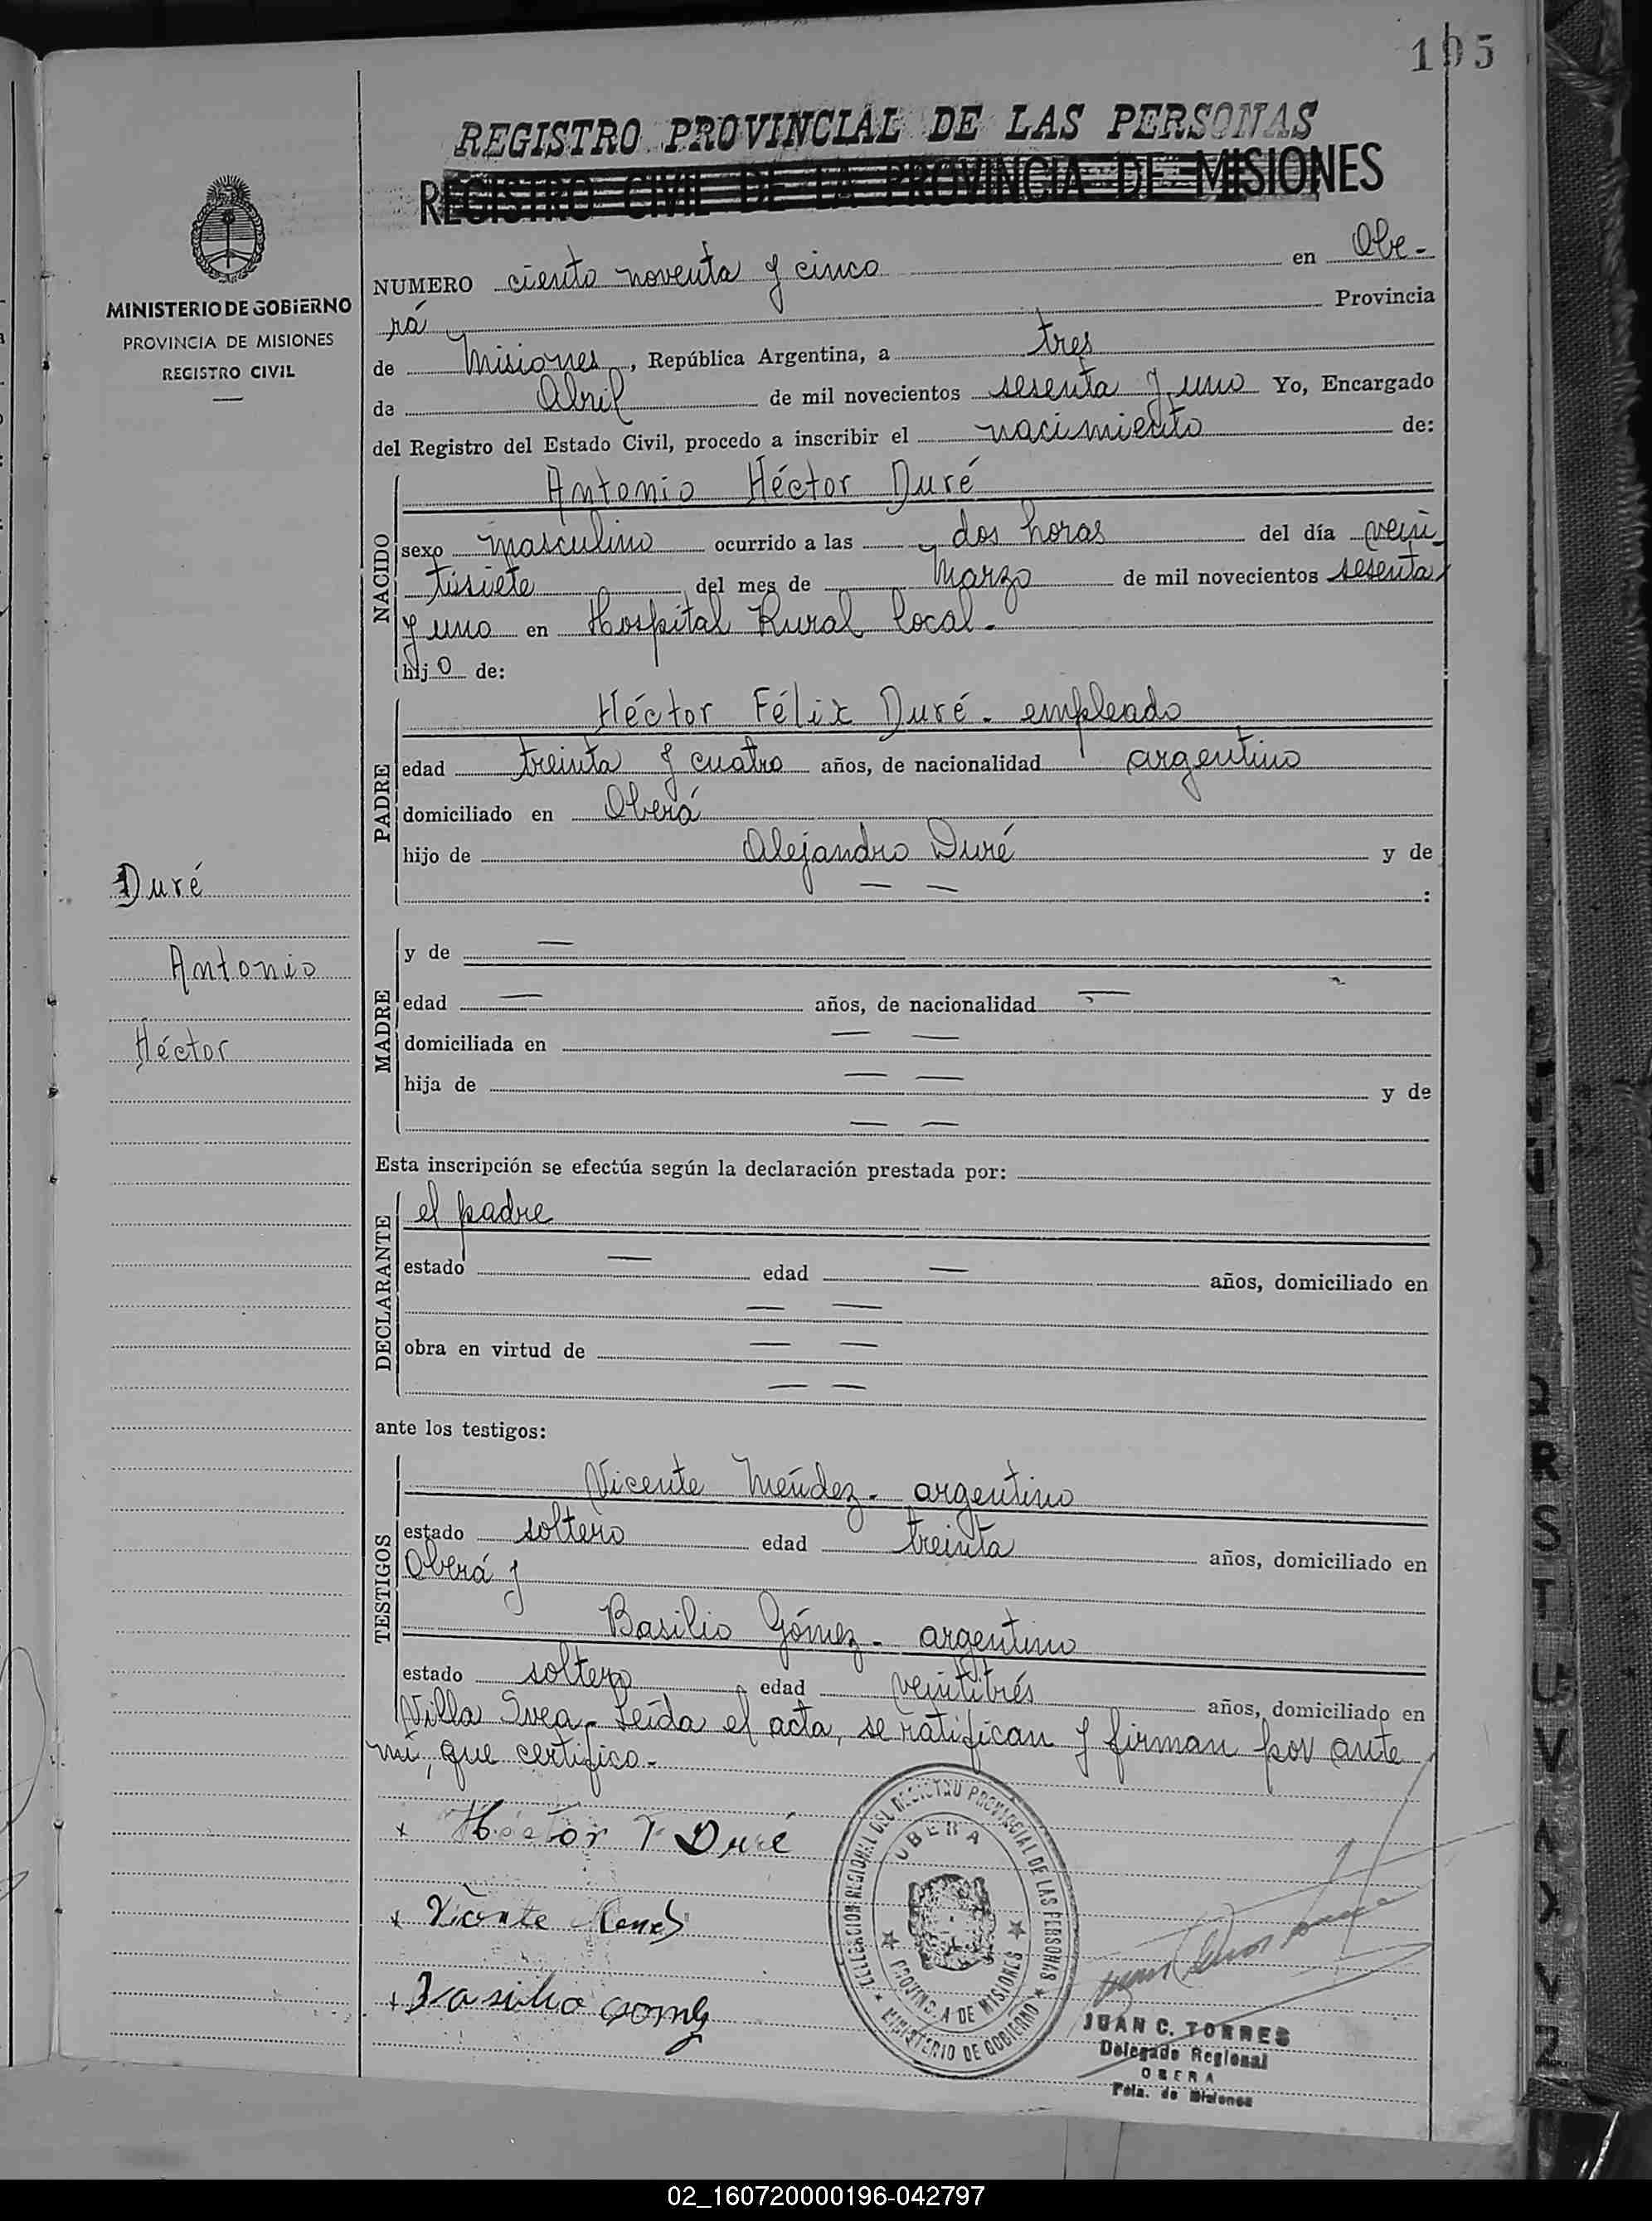 195
REGISTRO PROVINCIAL DE LAS PERSONAS
REGISTRO CIVIL DE LA PROVINCIA DE MISIONES
MINISTERIO DE GOBIERNO
PROVINCIA DE MISIONES
REGISTRO CIVIL
NUMERO ciento noventa y cinco en Obe-
rá Provincia
de Misiones, República Argentina, a tres
de Abril de mil novecientos sesenta y uno Yo, Encargado
del Registro del Estado Civil, procedo a inscribir el nacimiento de:
NACIDO
Antonio Héctor Duré
sexo masculino ocurrido a las dos horas del día vein-
tisiete del mes de Marzo de mil novecientos sesenta
y uno en Hospital Rural local.-
hijo de:
PADRE
Héctor Félix Duré - empleado
edad treinta y cuatro años, de nacionalidad argentino
domiciliado en Oberá
hijo de Alejandro Duré y de
— — :
Duré
Antonio
Héctor
MADRE
y de —
edad — años, de nacionalidad —
domiciliada en — —
hija de — — y de
— —
Esta inscripción se efectúa según la declaración prestada por:
DECLARANTE
el padre
estado — edad — años, domiciliado en
— —
obra en virtud de — —
— —
ante los testigos:
TESTIGOS
Vicente Méndez - argentino
estado soltero edad treinta años, domiciliado en
Oberá y
Basilio Gómez - argentino
estado soltero edad veintitrés años, domiciliado en
Villa Svea.- Leída el acta, se ratifican y firman por ante
mí, que certifico.-
x Héctor F Duré
x Vicente
x Basilio Gomez
DELEGACION REGIONAL DEL REGISTRO PROVINCIAL DE LAS PERSONAS
OBERA
PROVINCIA DE MISIONES
MINISTERIO DE GOBIERNO
JUAN C. TORRES
Delegado Regional
OBERA
Pcia. de Misiones
R
S
T
U
V
X
Y
Z
02_160720000196-042797